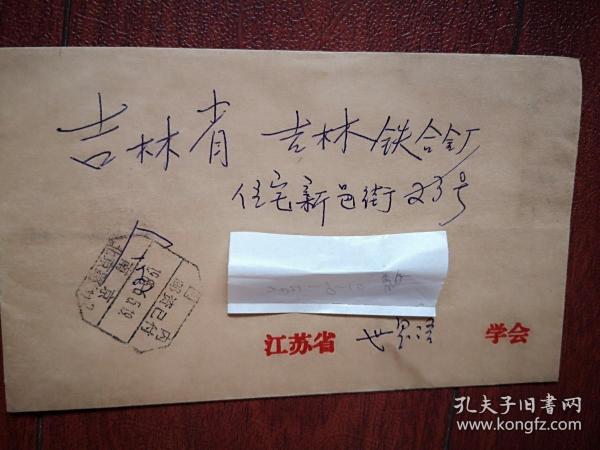 吉林省 吉林铁合金厂
住宅新邑街23号
江苏省 世界语 学会
国内
邮资已付
南京
孔夫子旧书网
www.kongfz.com